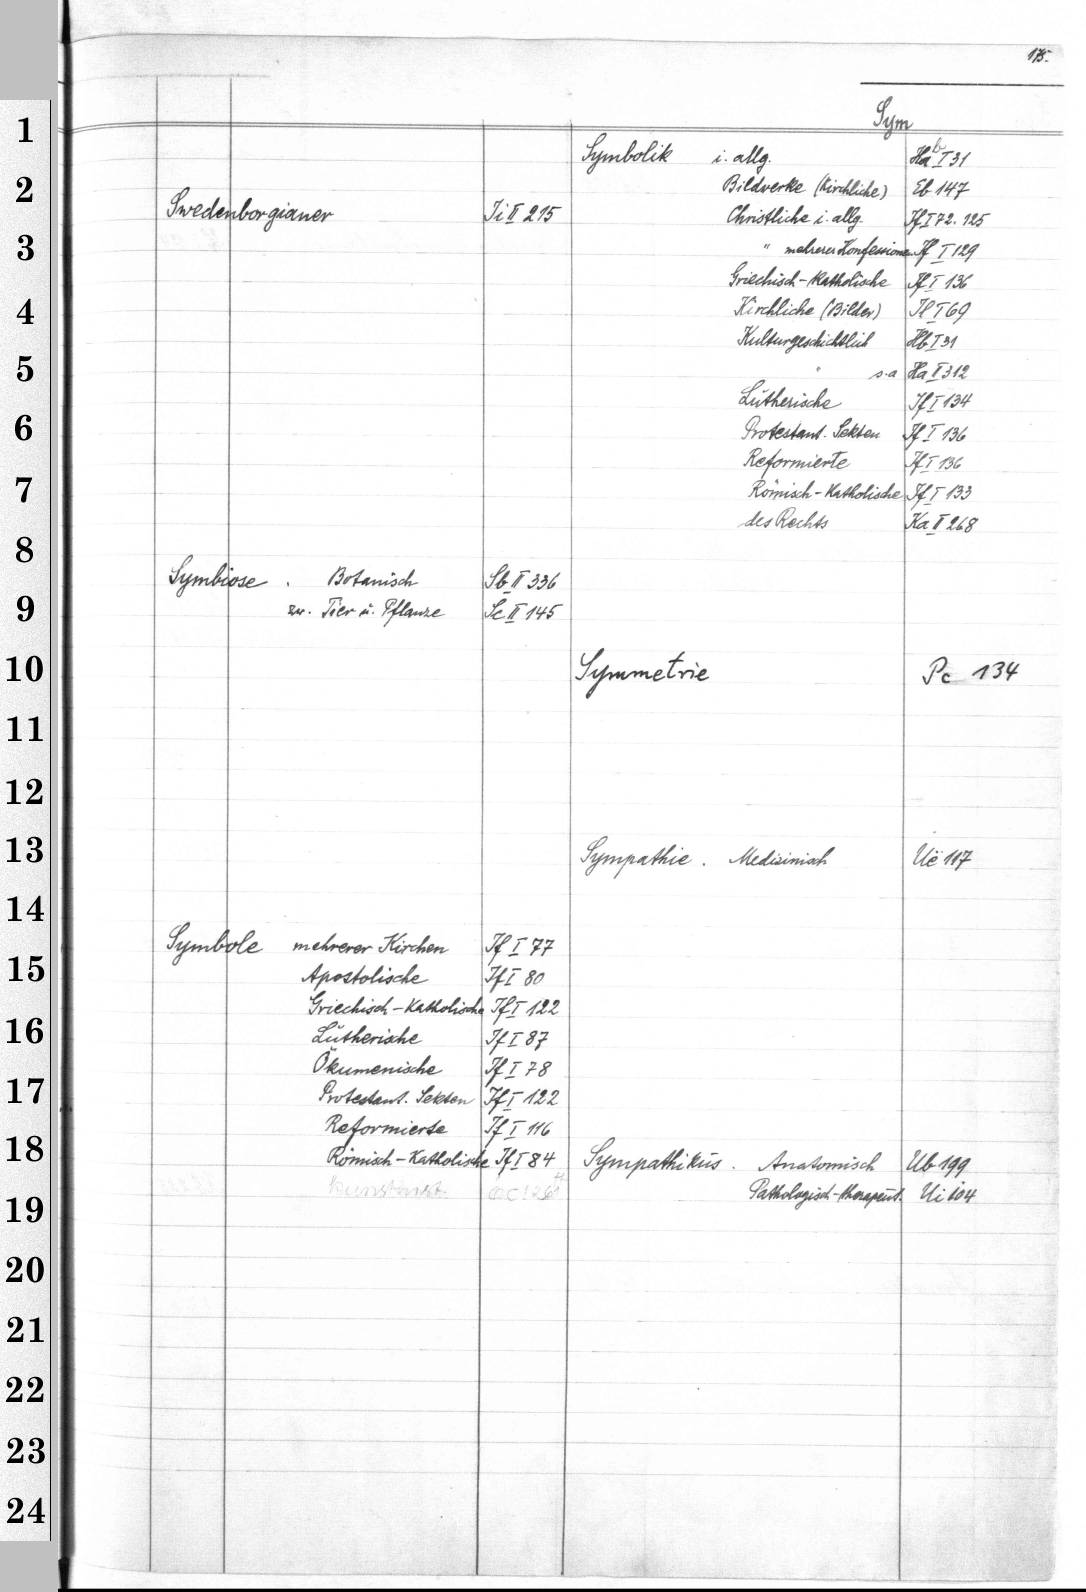 175.
Sym
Swedenborgianer Ti II 215
Symbiose . Botanisch Sb II 336
zw. Tier u. Pflanze Sc II 145
Symbole mehrerer Kirchen Tf I 77
Apostolische Tf I 80
Griechisch-Katholische Tf I 122
Lutherische Tf I 87
Ökumenische Tf I 78
Protestant. Sekten Tf I 122
Reformierte Tf I 116
Römisch-Katholische Tf I 84
Symbolik i. allg. Hb I 31
Bildwerke (Kirchliche) Eb 147
Christliche i. allg. Tf I 72. 125
" mehrerer Konfessionen Tf I 129
Griechisch-Katholische Tf I 136
Kirchliche (Bilder) Tl I 69
Kulturgeschichtlich Hb I 31
" s.a Ha II 312
Lutherische Tf I 134
Protestant. Sekten Tf I 136
Reformierte Tf I 136
Römisch-Katholische Tf I 133
des Rechts Ka II 268
Symmetrie Pc 134
Sympathie . Medizinisch Uë 117
Sympathikus . Anatomisch Ub 199
Pathologisch-therapeut. Ui 104
1
2
3
4
5
6
7
8
9
10
11
12
13
14
15
16
17
18
19
20
21
22
23
24